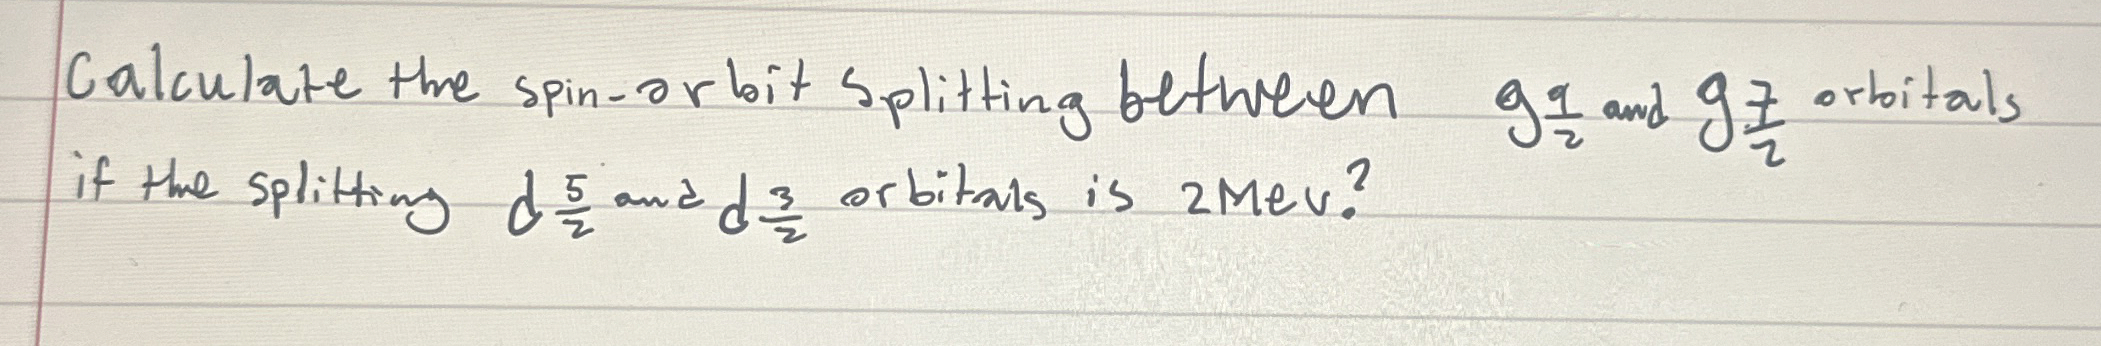 Calculate the spin-orbit splitting between g 9/2 and g 7/2 orbitals
if the splitting d 5/2 and d 3/2 orbitals is 2 Mev?